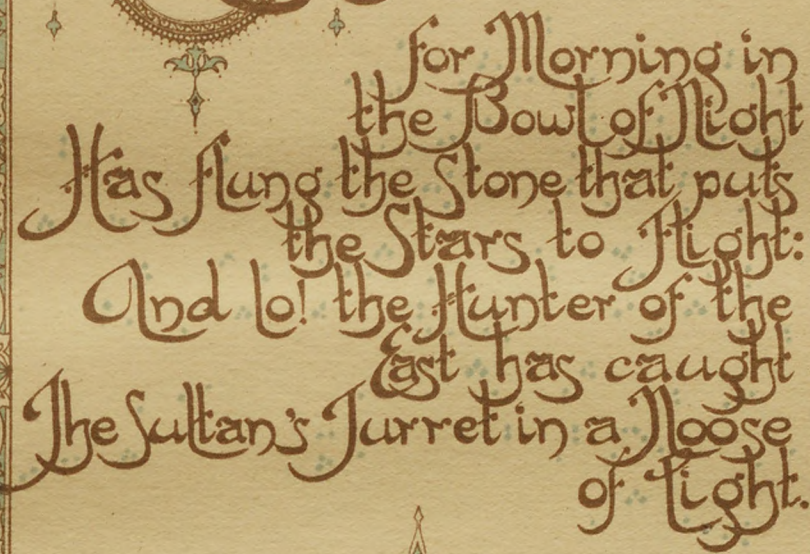 for Morning in
the Bowl of Night
Has flung the Stone that puts
the Stars to Flight:
And lo! the Hunter of the
East has caught
The Sultan's Turret in a Noose
of Light.